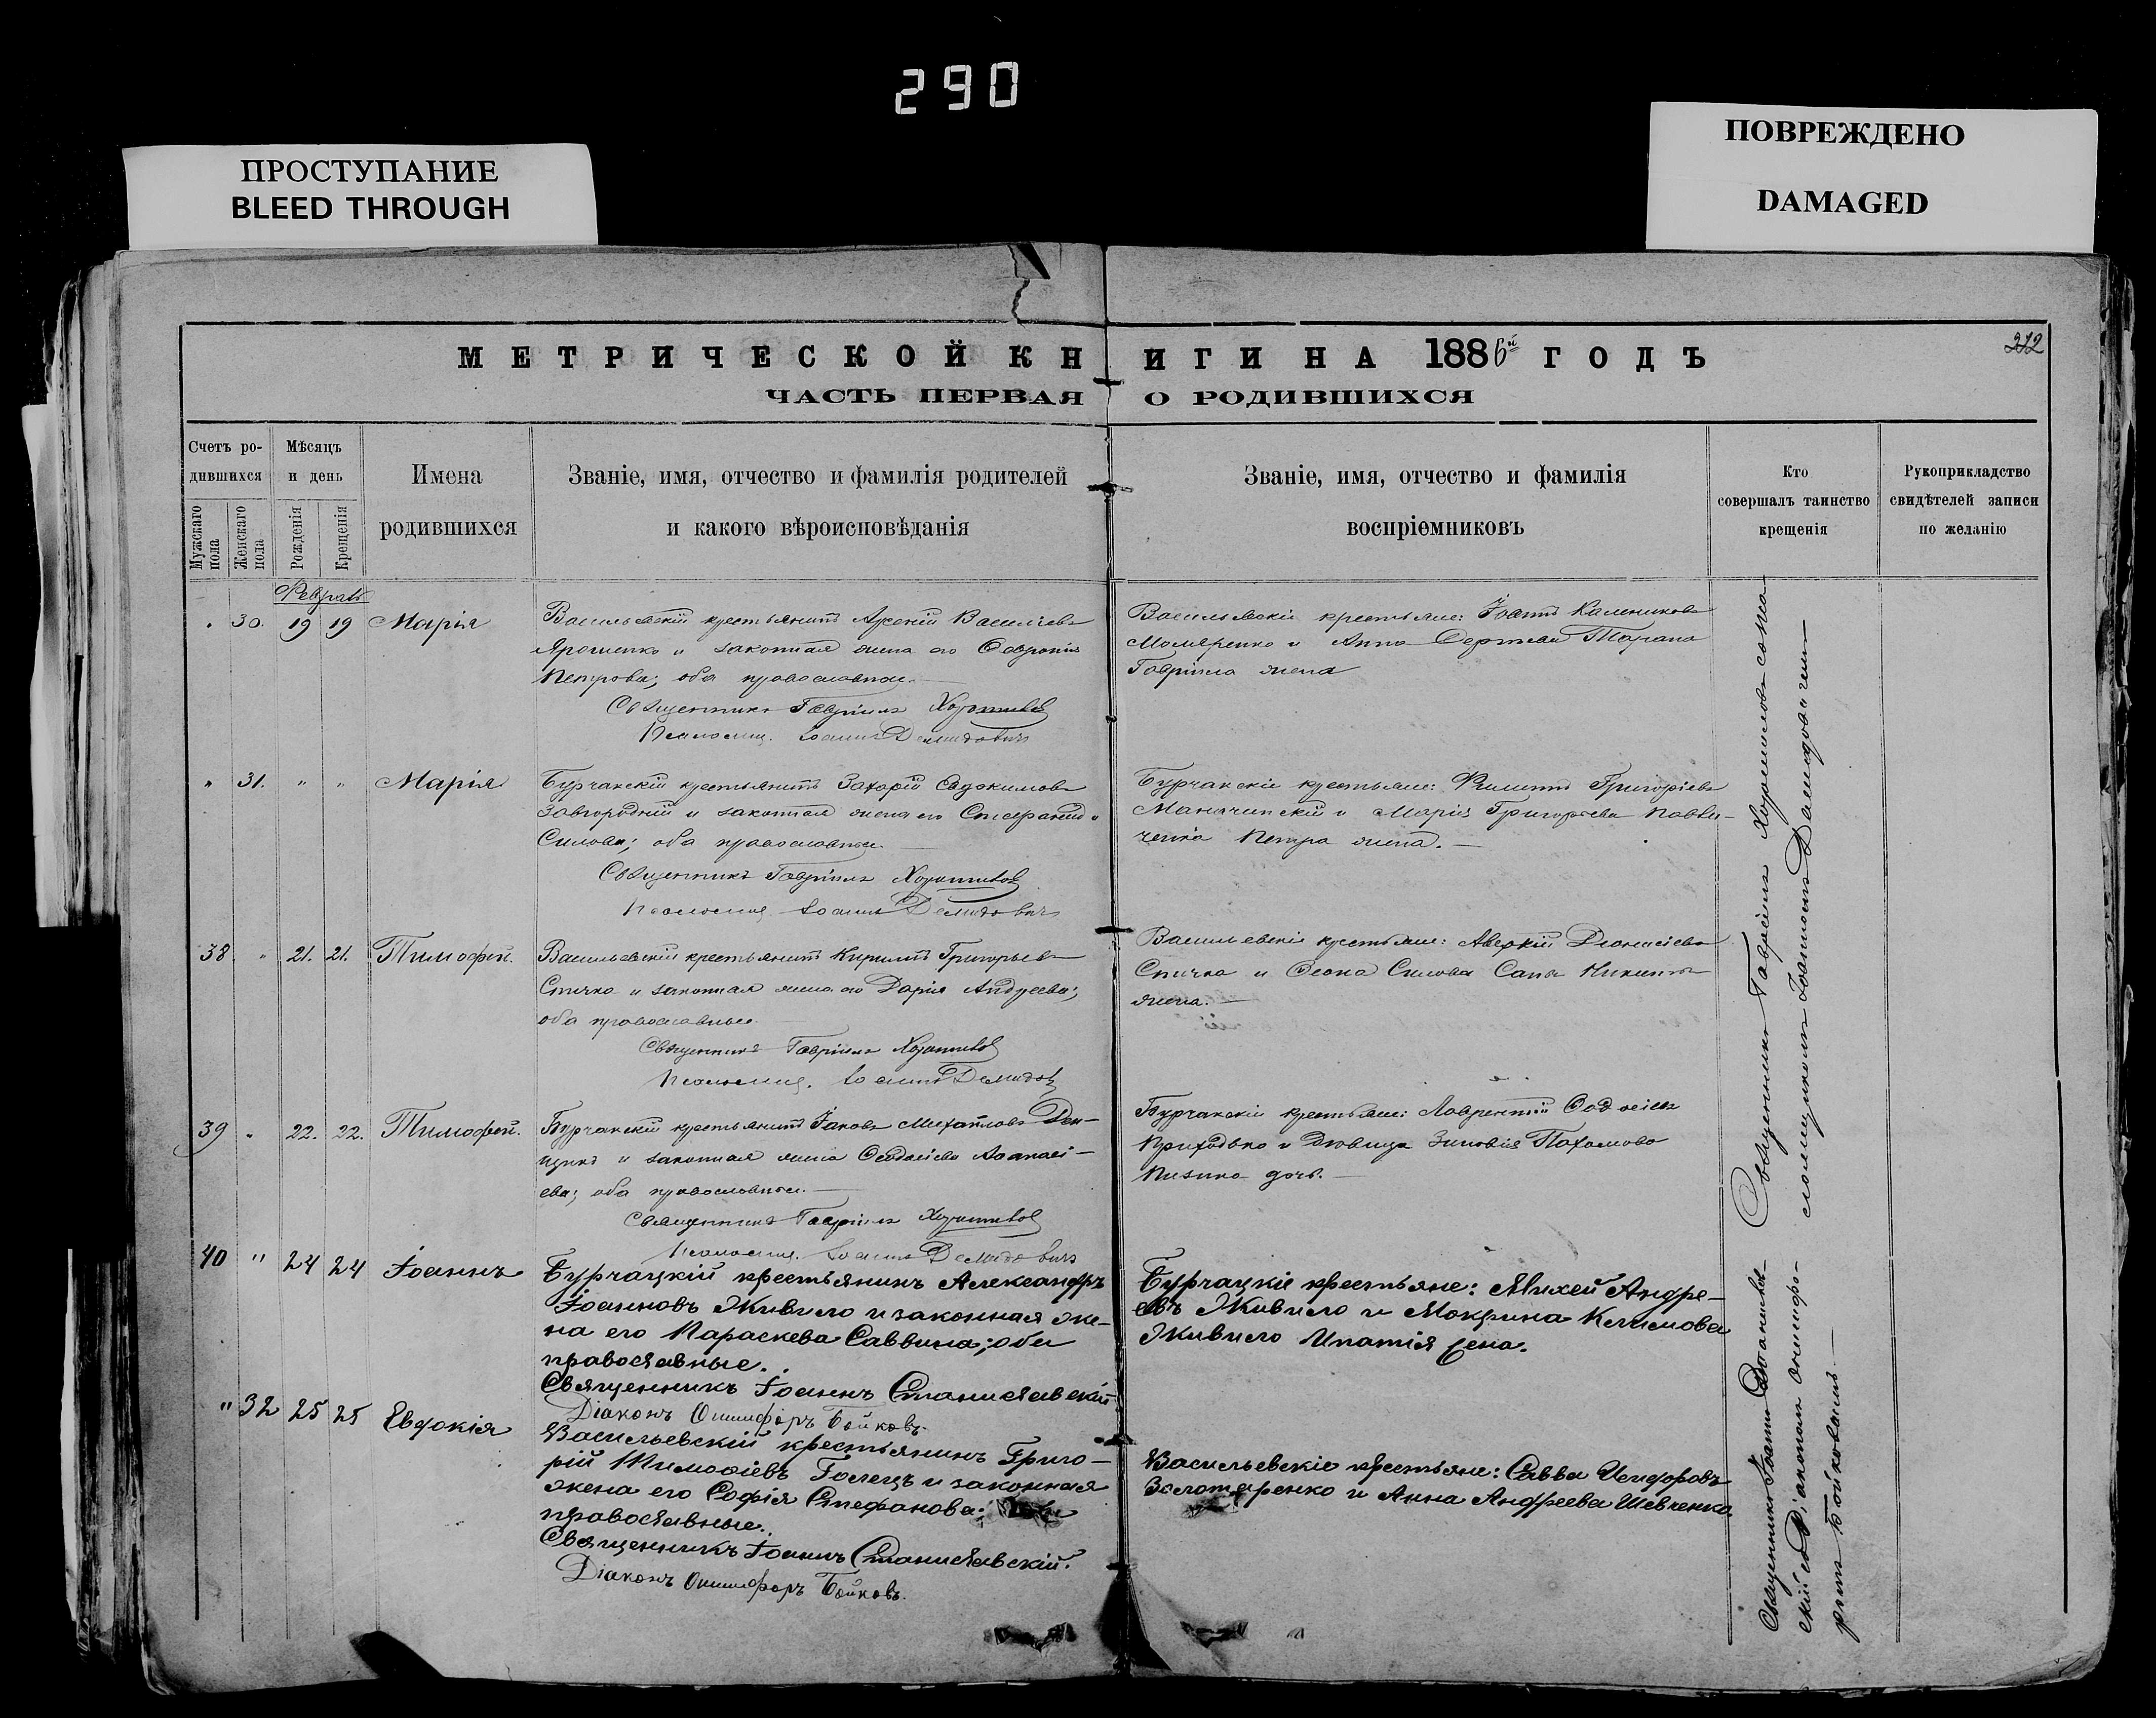 290
ПРОСТУПАНИЕ
BLEED THROUGH
ПОВРЕЖДЕНО
DAMAGED
МЕТРИЧЕСКОЙ КНИГИ НА 1886й ГОДЪ
212
ЧАСТЬ ПЕРВАЯ О РОДИВШИХСЯ
Счетъ ро-
дившихся
Мужскаго пола
Женскаго пола
Мѣсяцъ
и день
Рожденія
Крещенія
Имена
родившихся
Званіе, имя, отчество и фамилія родителей
и какого вѣроисповѣданія
Званіе, имя, отчество и фамилія
воспріемниковъ
Кто
совершалъ таинство
крещенія
Рукоприкладство
свидѣтелей записи
по желанію
" 30. 19 19 Марія
Васильевскій крестьянинъ Арсеній Василіевъ
Ярошенко и законная жена его Февронія
Петрова; оба православные.
Священникъ Гавріилъ
Іоаннъ Демидовичъ
Васильевскіе крестьяне: Іоаннъ Калениковъ
и Анна Сергіева Тарана
Гавріила жена
" 31. " " Марія
Бурчакскій крестьянинъ Захарій Евдокимовъ
Завгородній и законная жена его
Силова; оба православные.
Священникъ Гавріилъ
Іоаннъ Демидовичъ
Бурчакскіе крестьяне: Филиппъ Григоріевъ
и Марія Григорьева
Петра жена.
38 " 21. 21. Тимофей.
Васильевскій крестьянинъ Кириллъ Григорьевъ
Спичка и законная жена его Дарія Андреева;
оба православные
Священникъ Гавріилъ
Іоаннъ
Васильевскіе крестьяне: Аверкій Діонисіевъ
Спичка и Силова Сапы Никиты
жена.
39 " 22. 22. Тимофей.
Бурчакскій крестьянинъ Іаковъ Михаиловъ Ден-
щикъ и законная жена
ева; оба православные.
Священникъ Гавріилъ
Іоаннъ Демидовичъ
Бурчакскіе крестьяне: Лаврентій
Приходько и дѣвица Зиновія Пахомова
дочь.
40 " 24 24 Іоаннъ
Бурчацкій крестьянинъ Александръ
Іоанновъ Живило и законная же-
на его Параскева Саввина; оба
православные.
Священникъ Іоаннъ Станиславскій
Діаконъ Онисифоръ Бойковъ.
Бурчацкіе крестьяне: Михей Андре-
евъ Живило и Мокрина Климова
Живило Ипатія жена.
" 32 25 25 Евдокія
Васильевскій крестьянинъ Григо-
рій Тимоѳіевъ Голецъ и законная
жена его Софія Стефанова; оба
православные.
Священникъ Іоаннъ Станиславскій.
Діаконъ Онисифоръ Бойковъ.
Васильевскіе крестьяне: Савва Исидоровъ
Золотаренко и Анна Андреева Шевченко.
Священникъ Гавріилъ
Іоанномъ Демидовичемъ
Священникъ Іоаннъ Станислав-
скій съ Діакономъ Онисифо-
ромъ Бойковымъ.